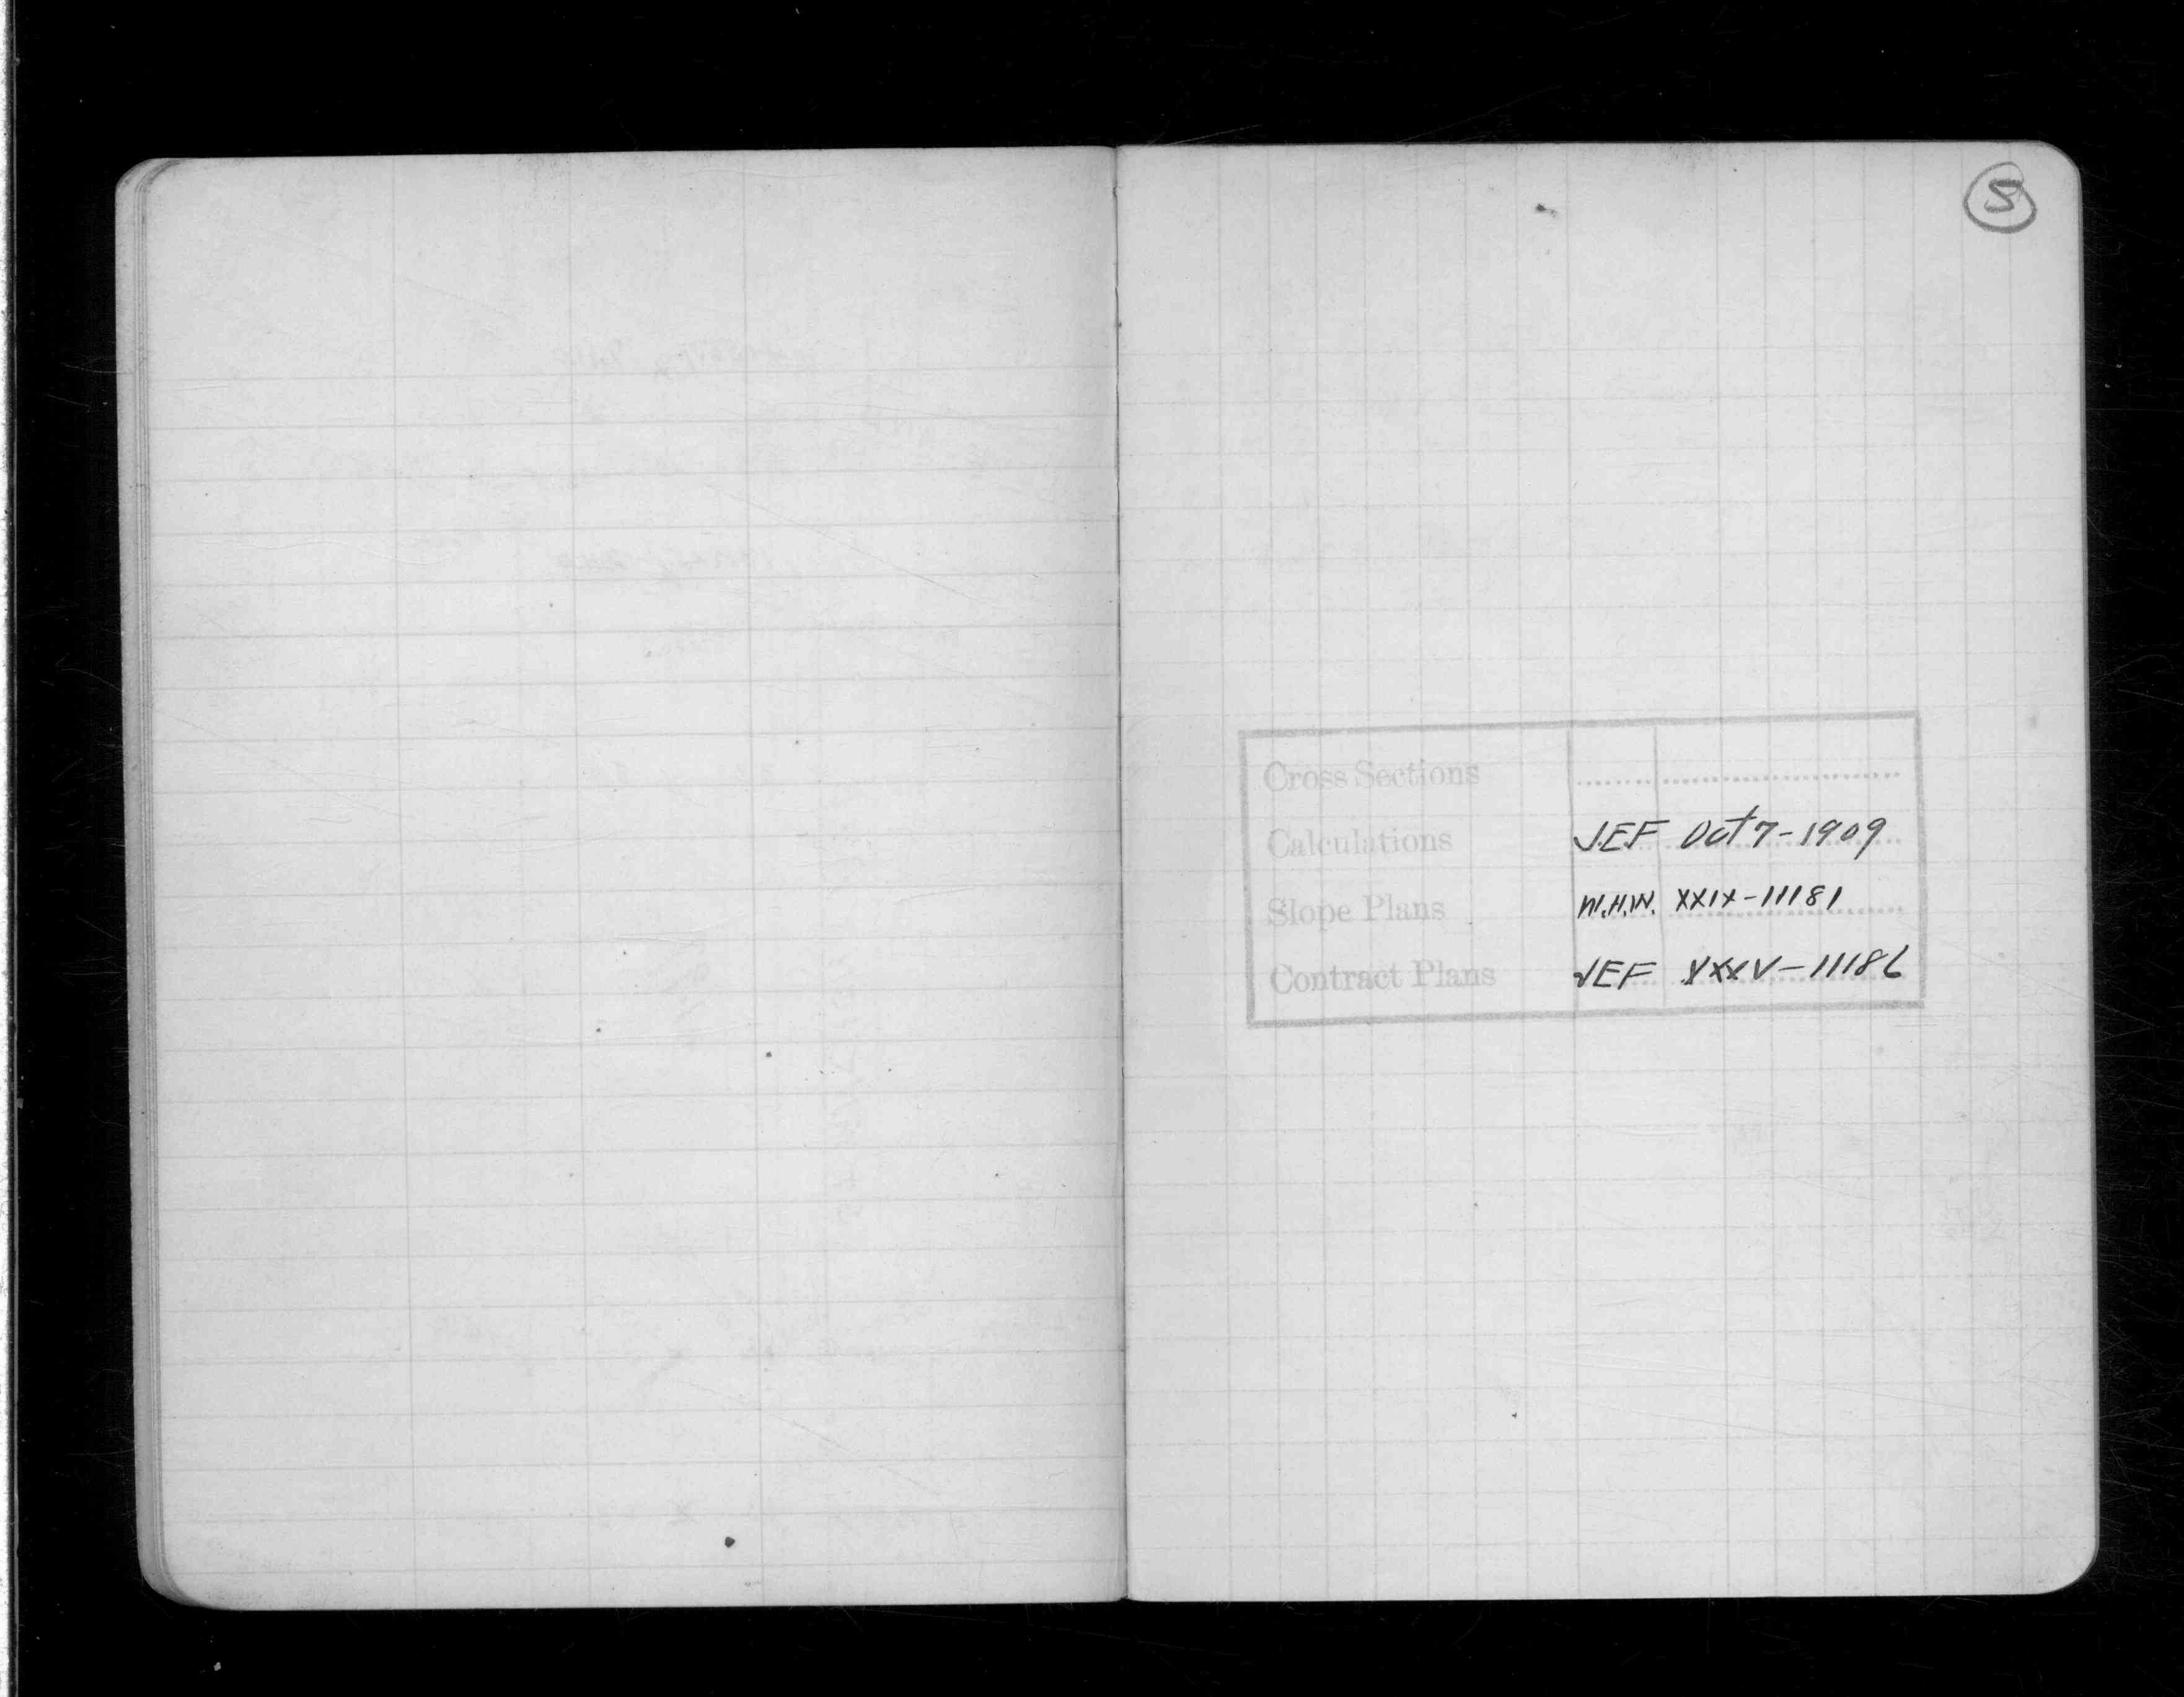 5
Cross Sections
Calculations J.E.F Oct 7-1909
Slope Plans W.H.W. XXIX-11181
Contract Plans JEF XXXV-11186